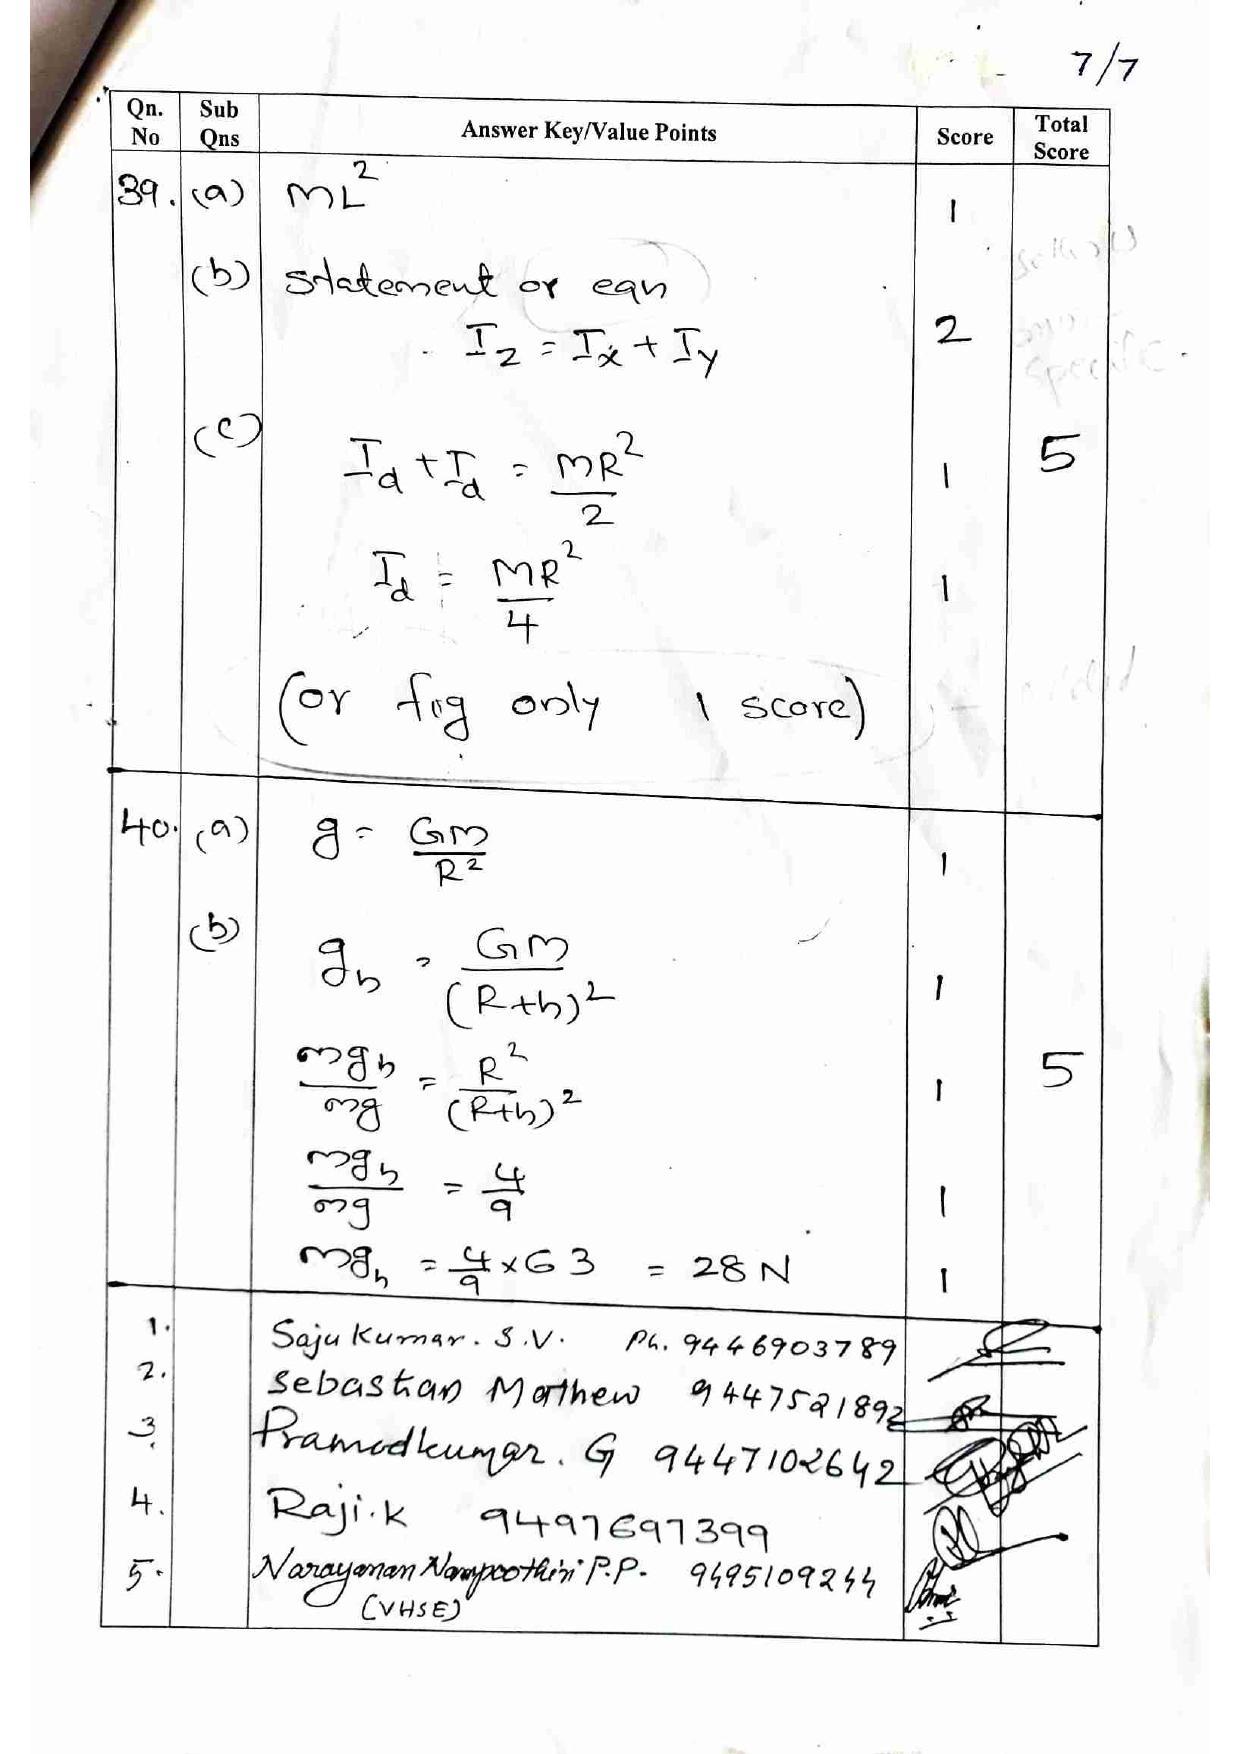 7/7
Qn. No Sub Qns Answer Key/Value Points Score Total Score
39. (a) ML² 1
(b) statement or eqn
I_z = I_x + I_y 2
(c) I_d + I_d = MR²/2 1 5
I_d = MR²/4 1
(or fig only 1 score)
40. (a) g = GM/R² 1
(b) g_h = GM/(R+h)² 1
mg_h/mg = R²/(R+h)² 1 5
mg_h/mg = 4/9 1
mg_h = 4/9 × 63 = 28 N 1
1. Saju Kumar. S.V. Ph. 9446903789
2. Sebastian Mathew 9447521892
3. Pramodkumar. G 9447102642
4. Raji.K 9497697399
5. Narayanan Nampoothiri P.P. 9495109244
(VHSE)